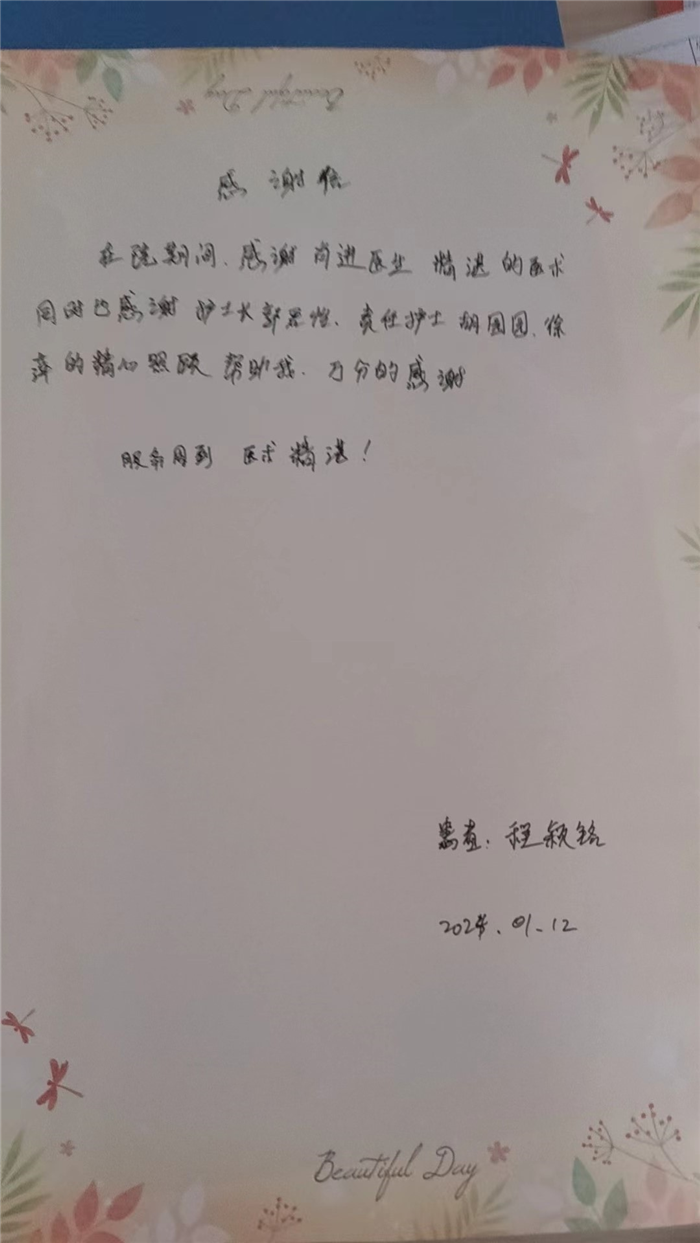 Beautiful Day
感谢信
在院期间、感谢肖进医生 精湛的医术
同时也感谢护士长郭 、责任护士胡园园、徐
萍的精心照顾 帮助我、万分的感谢
服务周到 医术精湛!
患者:程颖铭
2024.01-12
Beautiful Day